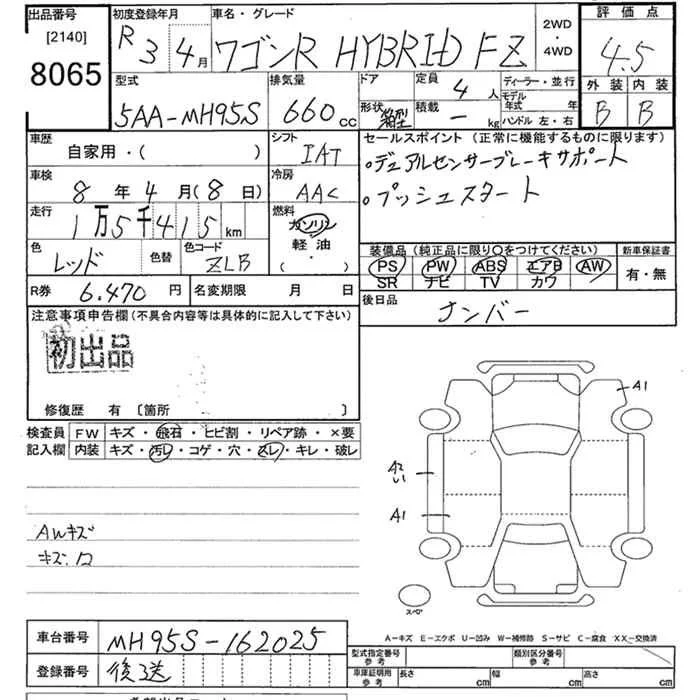 出品番号 初度登録年月 車名・グレード 2WD・4WD 評価点
[2140] R3年4月 ワゴンR HYBRID FZ 4.5
8065
型式 排気量 ドア 定員 4人 ディーラー・並行 外装 内装
5AA-MH95S 660cc 形状 箱型 積載 - kg モデル年式 年 B B
ハンドル 左・右
車歴 シフト セールスポイント(正常に機能するものに限ります)
自家用・( ) IAT •デュアルセンサーブレーキサポート
車検 冷房 •プッシュスタート
8年4月(8日) AAC
走行 燃料
1万5千415km ガソリン
軽油
( ・ )
色 色替 色コード 装備品(純正品に限り〇をつけてください) 新車保証書
レッド ZLB PS PW ABS エアB AW 有・無
SR ナビ TV カワ
R券 6.470円 名変期限 月 日 後日品
ナンバー
注意事項申告欄(不具合内容等は具体的に記入して下さい)
初出品
修復歴 有 〔箇所 〕
検査員 FW キズ・飛石・ヒビ割・リペア跡・×要
記入欄 内装 キズ・汚レ・コゲ・穴・スレ・キレ・破レ
A1
A2
A1
AWキズ
スペア
A-キズ E-エクボ U-凹み W-補修跡 S-サビ C-腐食 XX-交換済
車台番号 MH95S-162025 型式指定番号 参考 類別区分番号 参考
登録番号 後送 車庫証明用 参考 長さ cm 幅 cm 高さ cm